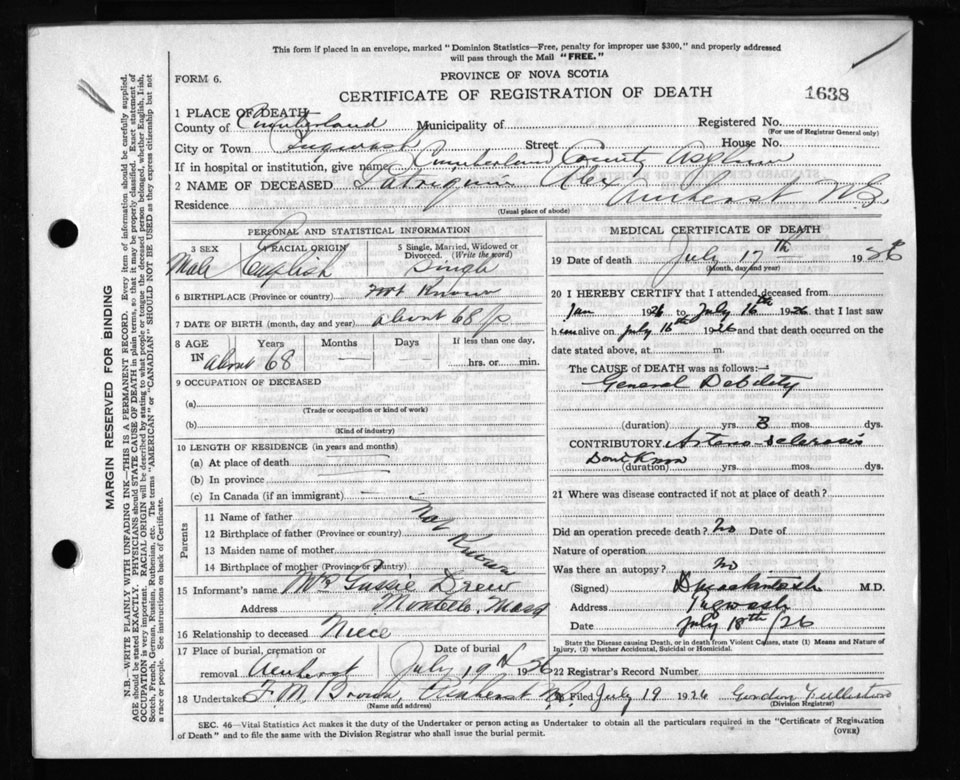 This form if placed in an envelope, marked "Dominion Statistics—Free, penalty for improper use $300," and properly addressed
will pass through the Mail "FREE."
FORM 6.
PROVINCE OF NOVA SCOTIA
CERTIFICATE OF REGISTRATION OF DEATH
1638
1 PLACE OF DEATH
County of Cumberland Municipality of Registered No.
(For use of Registrar General only)
City or Town Pugwash Street House No.
If in hospital or institution, give name Cumberland County Asylum
2 NAME OF DECEASED Patriquin Alex
Residence Amherst N.S.
(Usual place of abode)
PERSONAL AND STATISTICAL INFORMATION
3 SEX 4 RACIAL ORIGIN 5 Single, Married, Widowed or
Divorced. (Write the word)
Male English Single
6 BIRTHPLACE (Province or country) Not Known
7 DATE OF BIRTH (month, day and year) about 68
8 AGE Years Months Days If less than one day,
IN about 68 — — hrs. or min.
9 OCCUPATION OF DECEASED
(a)
(Trade or occupation or kind of work)
(b)
(Kind of industry)
10 LENGTH OF RESIDENCE (in years and months)
(a) At place of death
(b) In province
(c) In Canada (if an immigrant)
Parents
11 Name of father
12 Birthplace of father (Province or country)
13 Maiden name of mother
14 Birthplace of mother (Province or country)
Not Known
15 Informant's name Mrs Gussie Drew
Address Montello, Mass
16 Relationship to deceased Niece
17 Place of burial, cremation or Date of burial
removal Amherst July 19th 1926
18 Undertaker F. M. Brown, Amherst N.S.
(Name and address)
MEDICAL CERTIFICATE OF DEATH
19 Date of death July 17th 1926
(Month, day and year)
20 I HEREBY CERTIFY that I attended deceased from
Jan 1926 to July 16th 1926 that I last saw
him alive on July 16th 1926 and that death occurred on the
date stated above, at m.
The CAUSE of DEATH was as follows:—
General Debility
(duration) yrs. 3 mos. dys.
CONTRIBUTORY Arterio-sclerosis
Dont Know
(duration) yrs. mos. dys.
21 Where was disease contracted if not at place of death?
Did an operation precede death? No Date of
Nature of operation
Was there an autopsy? No
(Signed) D Mackintosh M.D.
Address Pugwash
Date July 18th/26
State the Disease causing Death, or in death from Violent Causes, state (1) Means and Nature of
Injury, (2) whether Accidental, Suicidal or Homicidal.
22 Registrar's Record Number
Filed July 19 1926 Gordon
(Division Registrar)
SEC. 46—Vital Statistics Act makes it the duty of the Undertaker or person acting as Undertaker to obtain all the particulars required in the "Certificate of Registration
of Death" and to file the same with the Division Registrar who shall issue the burial permit.
(OVER)
MARGIN RESERVED FOR BINDING
N.B.—WRITE PLAINLY WITH UNFADING INK—THIS IS A PERMANENT RECORD. Every item of information should be carefully supplied.
AGE should be stated EXACTLY. PHYSICIANS should STATE CAUSE OF DEATH in plain terms, so that it may be properly classified. Exact statement of
OCCUPATION is very important. RACIAL ORIGIN will be described by stating to what people or tongue the deceased person belonged, whether English, Irish,
Scotch, French, German, Russian, Ruthenian, etc. The terms "AMERICAN" or "CANADIAN" SHOULD NOT BE USED as they express citizenship but not
a race or people. See instructions on back of Certificate.